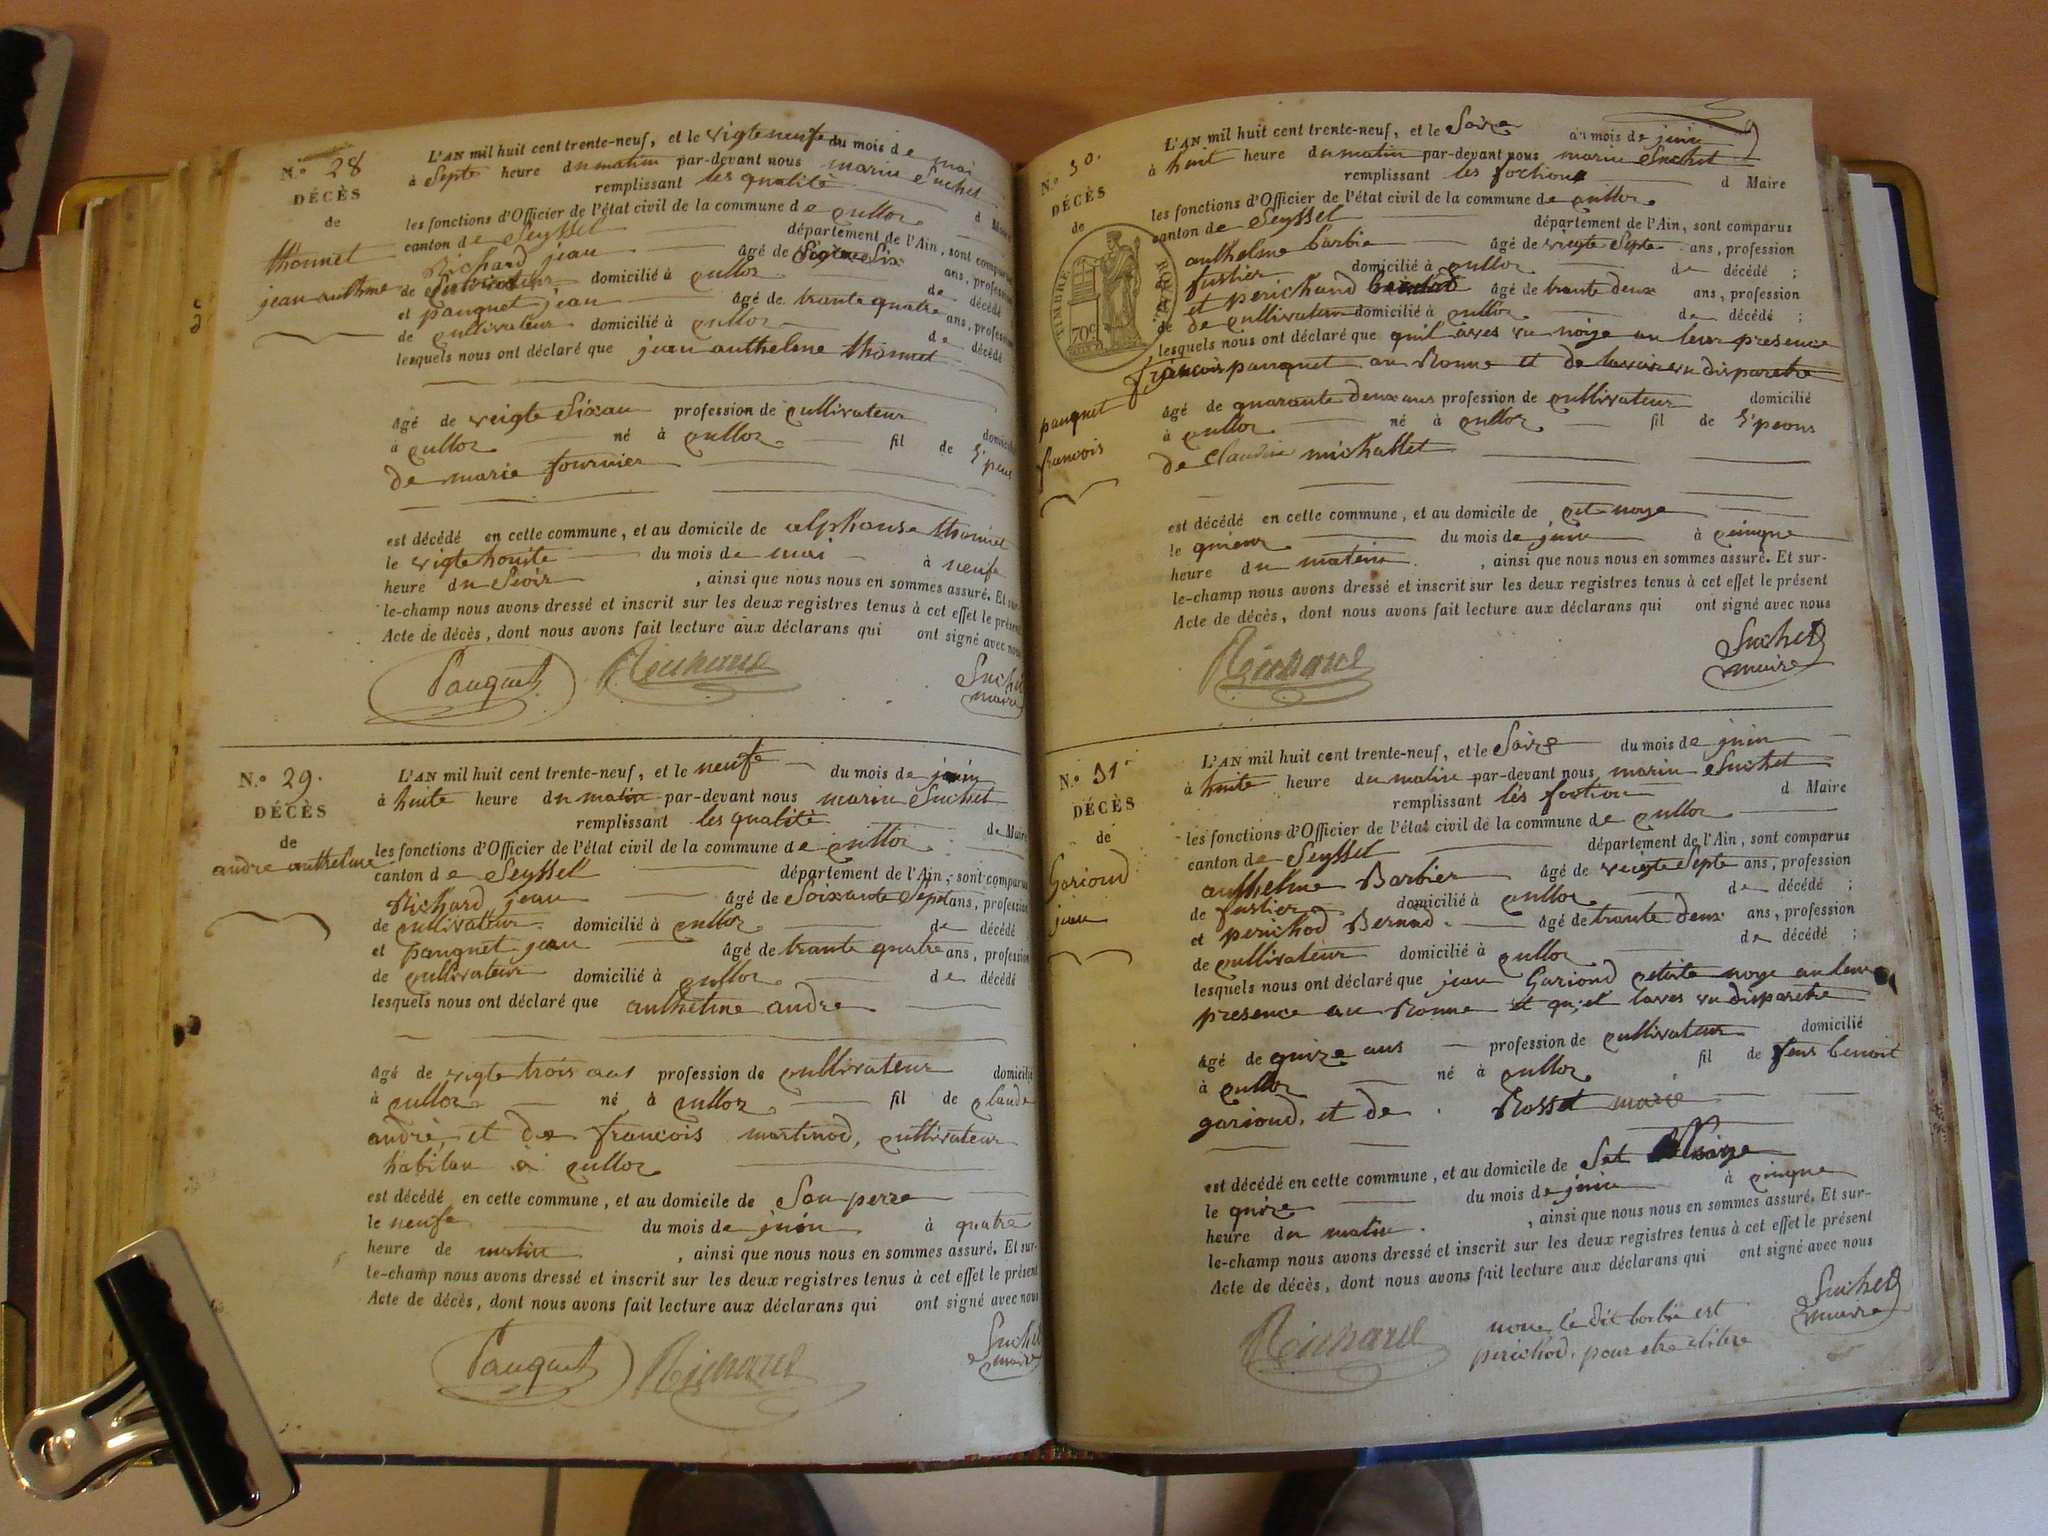 N.o 28
DÉCÈS
de
thonnet
jean anthme
L'AN mil huit cent trente-neuf, et le vigte neufe du mois de mai
à Septe heure du matin par-devant nous marin Suchet
remplissant les qualité d Maire
les fonctions d'Officier de l'état civil de la commune de culloz
canton de Seyssel département de l'Ain, sont comparus
Richard jean âgé de Six ans, profession
de cultivateur domicilié à culloz de décédé
et pauquet jean âgé de trante quatre ans, profession
de cultivateur domicilié à culloz de décédé
lesquels nous ont déclaré que jean anthelme thonnet
âgé de veigte Sixau profession de cultivateur domicilié
à culloz né à culloz fil de
de marie fournier
est décédé en cette commune, et au domicile de alphonse thonnet
le vigte houite du mois de mai à neufe
heure du Seoir , ainsi que nous nous en sommes assuré. Et sur-
le-champ nous avons dressé et inscrit sur les deux registres tenus à cet effet le présent
Acte de décès, dont nous avons fait lecture aux déclarans qui ont signé avec nous
Pauquet Richard Suchet
maire
N.o 29.
DÉCÈS
de
andre anthelme
L'AN mil huit cent trente-neuf, et le neufe du mois de juin
à huite heure du matin par-devant nous marin Suchet
remplissant les qualité de Maire
les fonctions d'Officier de l'état civil de la commune de culloz
canton de Seyssel département de l'Ain, sont comparus
Richard jean âgé de Soixante Sept ans, profession
de cultivateur domicilié à culloz de décédé
et pauquet jean âgé de trante quatre ans, profession
de cultivateur domicilié à culloz de décédé
lesquels nous ont déclaré que anthelme andre
âgé de vigte trois ans profession de cultivateur domicilié
à culloz né à culloz fil de claude
andre, et de francois martinod, cultivateur
habitan à culloz
est décédé en cette commune, et au domicile de Son perre
le neufe du mois de juin à quatre
heure de matin , ainsi que nous nous en sommes assuré. Et sur-
le-champ nous avons dressé et inscrit sur les deux registres tenus à cet effet le présent
Acte de décès, dont nous avons fait lecture aux déclarans qui ont signé avec nous
Pauquet Richard Suchet
maire
N.o 30.
DÉCÈS
de
TIMBRE ROYAL
70c
pauquet
francois
L'AN mil huit cent trente-neuf, et le Saize du mois de juin
à huit heure du matin par-devant nous marin Suchet
remplissant les foction d Maire
les fonctions d'Officier de l'état civil de la commune de culloz
canton de Seyssel département de l'Ain, sont comparus
anthelme barbie âgé de veigte Septe ans, profession
de fustier domicilié à culloz de décédé ;
et perichaud âgé de trante deux ans, profession
de cultivateur domicilié à culloz de décédé ;
lesquels nous ont déclaré que quil aves vu noige au leur presence
francois pauquet au Ronne et de lavoir vu disparetre
âgé de quarante deux ans profession de cultivateur domicilié
à culloz né à culloz fil de
de claudine michallet
est décédé en cette commune, et au domicile de cet noye
le quienze du mois de juin à cinque
heure du matin , ainsi que nous nous en sommes assuré. Et sur-
le-champ nous avons dressé et inscrit sur les deux registres tenus à cet effet le présent
Acte de décès, dont nous avons fait lecture aux déclarans qui ont signé avec nous
Richard Suchet
maire
N.o 31
DÉCÈS
de
Garioud
jean
L'AN mil huit cent trente-neuf, et le Saize du mois de juin
à huite heure du matin par-devant nous marin Suchet
remplissant lés foction d Maire
les fonctions d'Officier de l'état civil de la commune de culloz
canton de Seyssel département de l'Ain, sont comparus
anthelme Barbier âgé de veigte Septe ans, profession
de fustier domicilié à culloz de décédé ;
et perichod Bernad âgé de trante deux ans, profession
de cultivateur domicilié à culloz de décédé ;
lesquels nous ont déclaré que jean Gariond noye au leur
presence au Ronne et quil laves vu disparetre
âgé de quize ans profession de cultivateur domicilié
à culloz né à culloz fil de feus benoit
gariond, et de Rosset marie
est décédé en cette commune, et au domicile de Set noye
le quize du mois de juin à cinque
heure du matin , ainsi que nous nous en sommes assuré. Et sur-
le-champ nous avons dressé et inscrit sur les deux registres tenus à cet effet le présent
Acte de décès, dont nous avons fait lecture aux déclarans qui ont signé avec nous
Richard nom le dit barbie est Suchet
perichod, pour etre maire